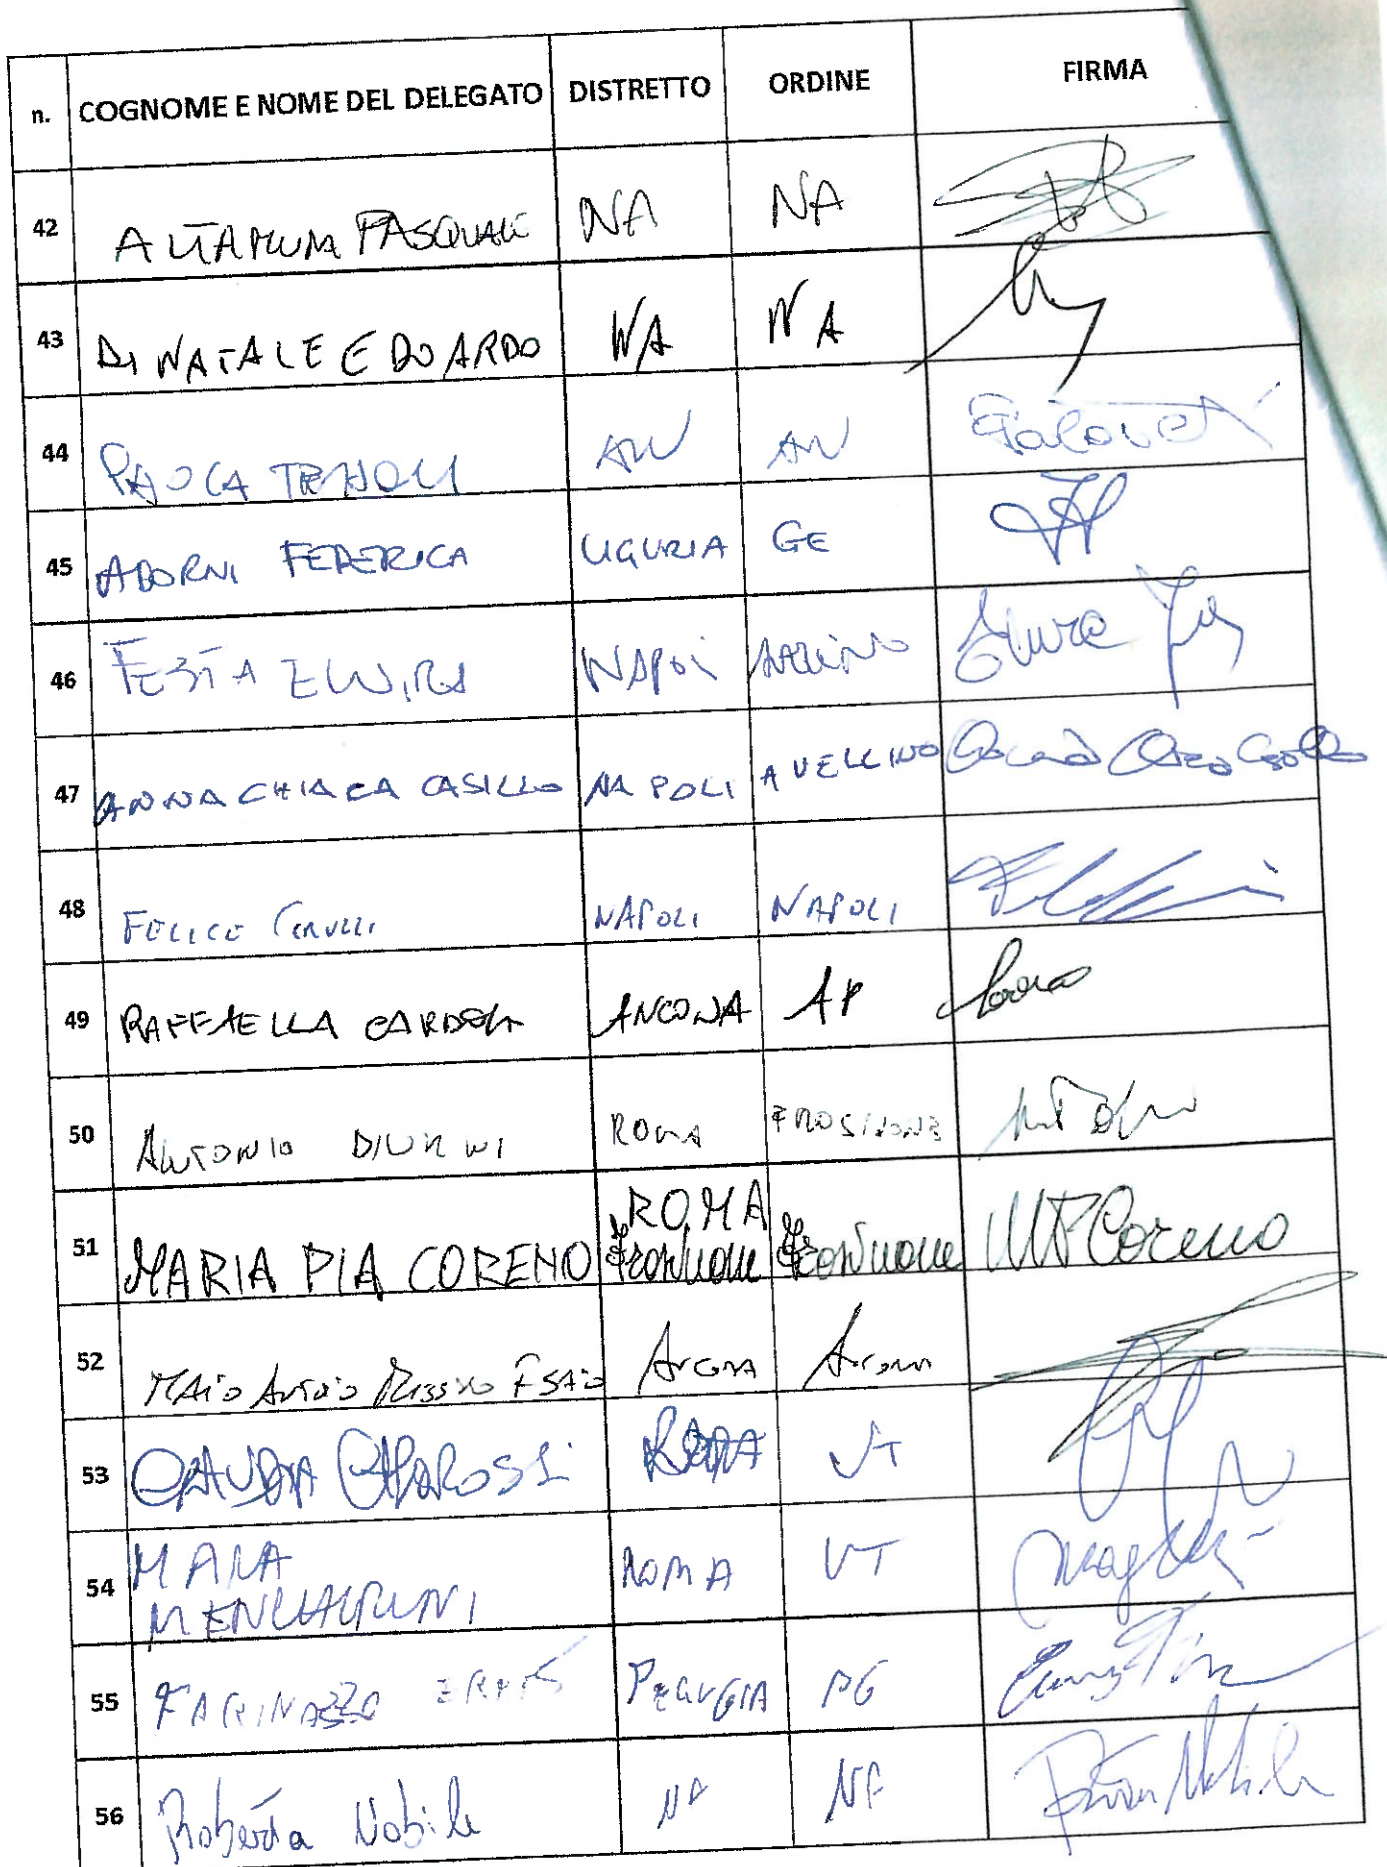 n. COGNOME E NOME DEL DELEGATO DISTRETTO ORDINE FIRMA
42 ALTAMURA PASQUALE NA NA
43 DI NATALE EDOARDO NA NA
44 PAOLA AN AN
45 ADORNI FEDERICA LIGURIA GE
46 FESTA ELVIRA NAPOLI AVELLINO Elvira
47 ANNA CHIARA CASILLO NAPOLI AVELLINO
48 FELICE CERULLI NAPOLI NAPOLI
49 RAFFAELLA ANCONA AP
50 ANTONIO DIURNI ROMA FROSINONE
51 MARIA PIA CORENO ROMA Frosinone Frosinone MPCoreno
52 Ancona Ancona
53 CLAUDIA ROMA VT
54 MARA ROMA VT
MENCHERINI
55 FARINAZZO PERUGIA PG
56 Roberta Nobile NA NA Nobile